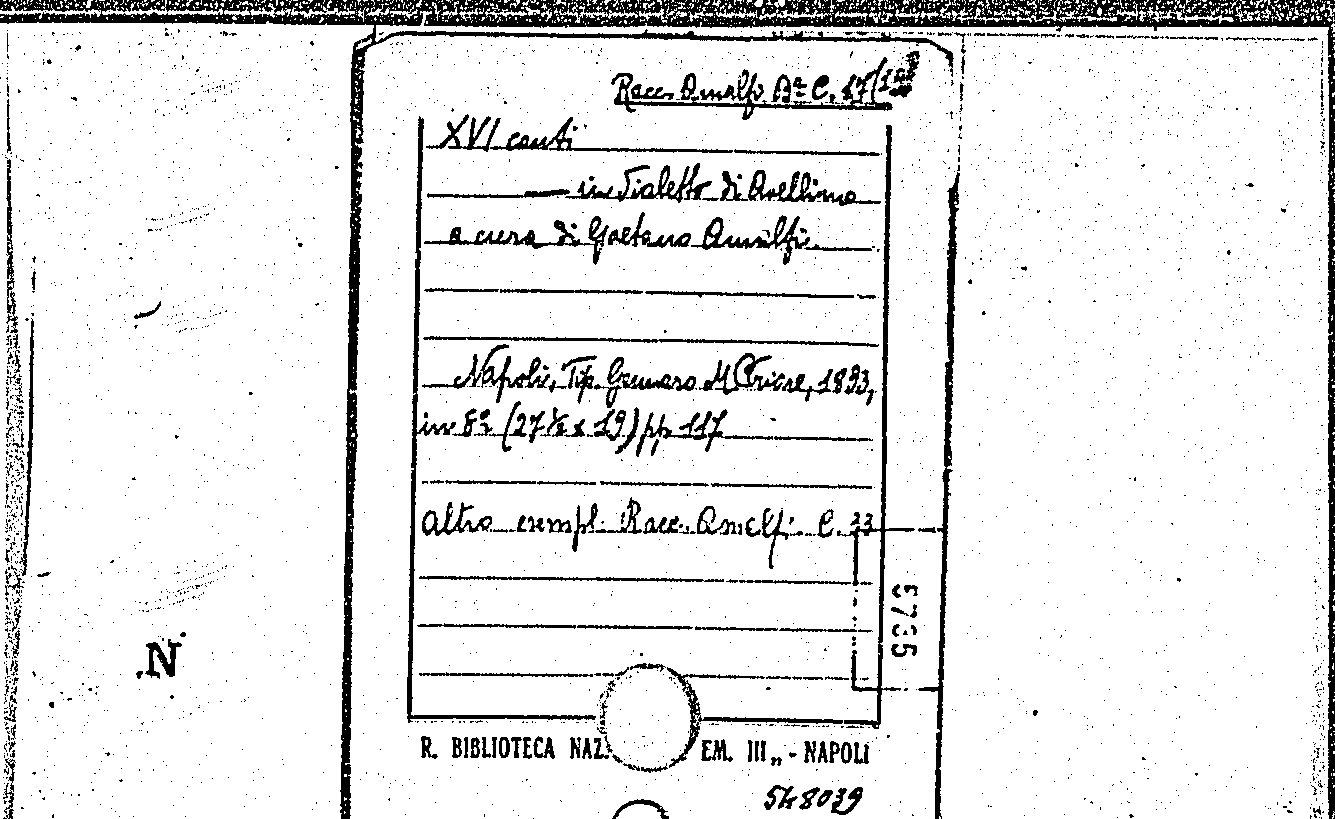 Racc. Amalfi Aª C. 17/
XVI canti
— in dialetto di Avellino
a cura di Gaetano Amalfi.
Napoli, Tip. Gennaro M. Priore, 1893,
in 8º (27½ x 19) pp. 117
altro esempl. Racc. Amalfi. C. 33
5735
N.
R. BIBLIOTECA NAZ. EM. III„ - NAPOLI
548039